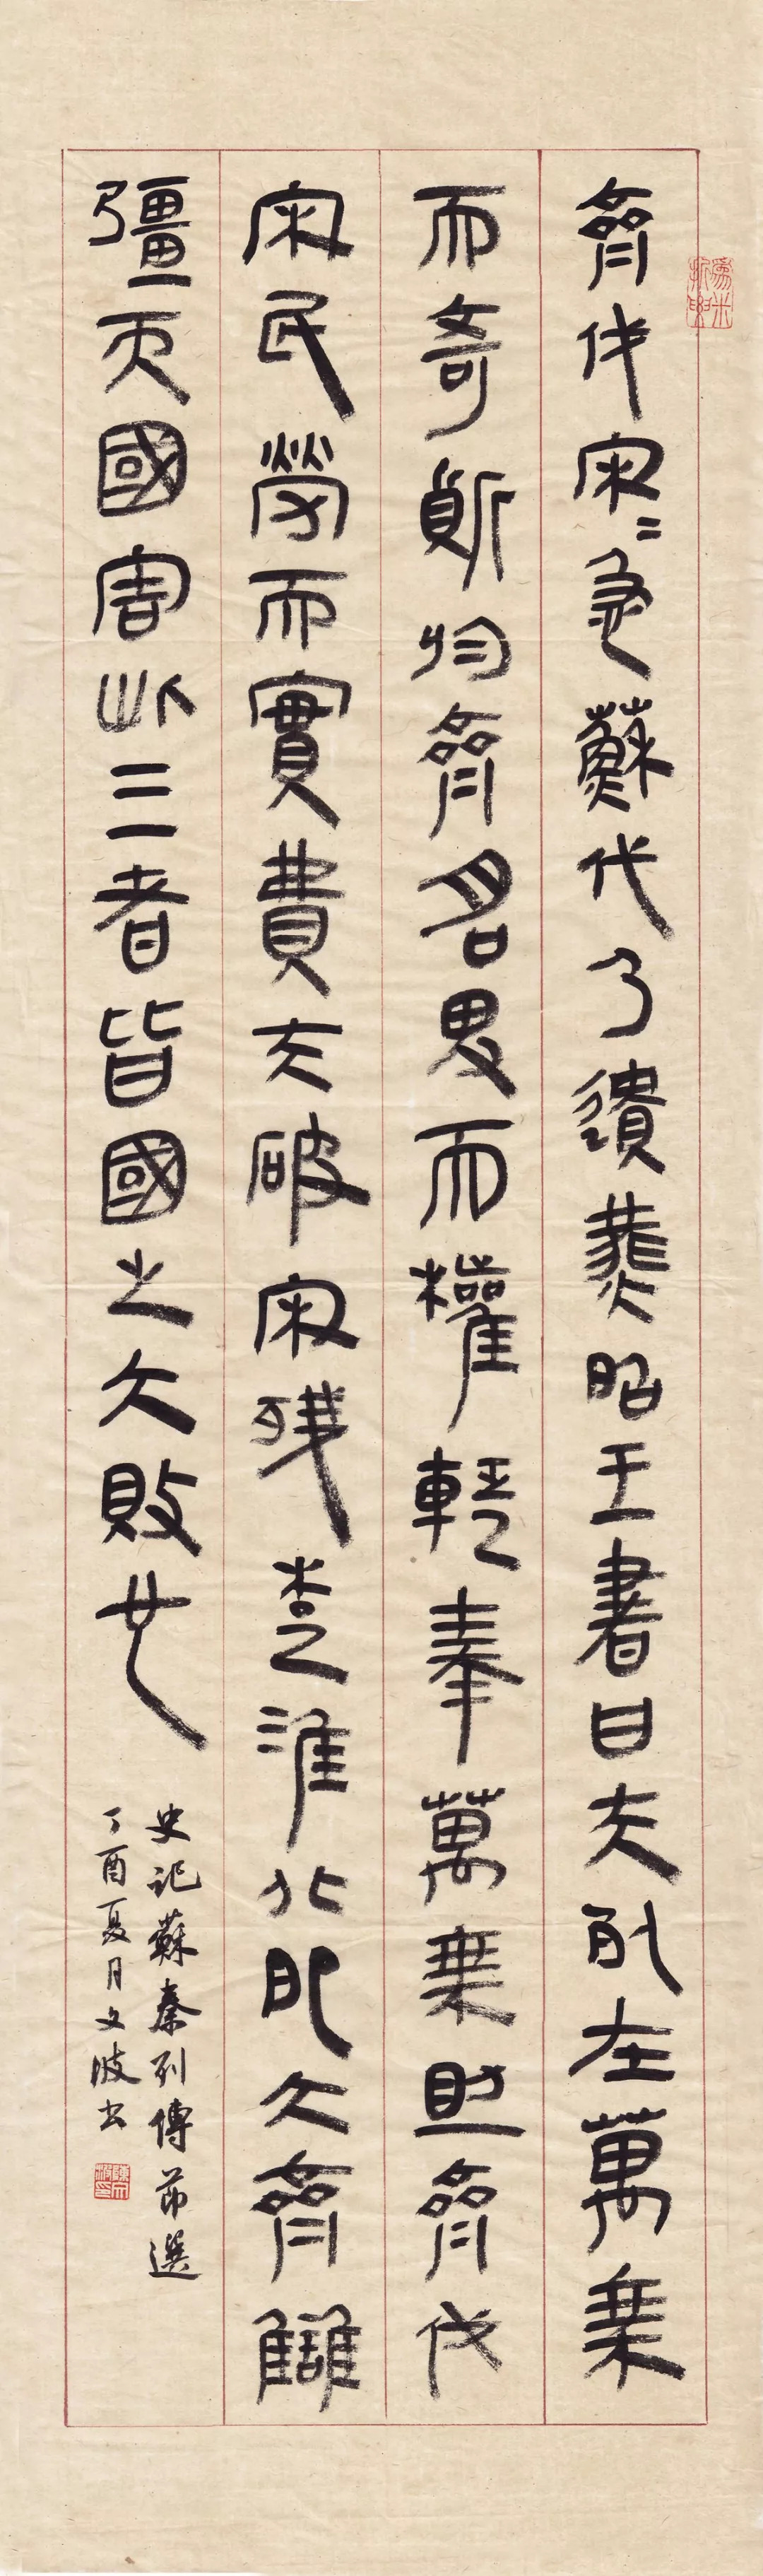 齊伐宋〻急蘇代乃遺燕昭王書曰夫列在萬乘
而寄質於齊名卑而權輕奉萬乘助齊伐
宋民勞而實費夫破宋殘楚淮北肥大齊讎
彊而國害此三者皆國之大敗也
史記蘇秦列傳節選
丁酉夏月文波书